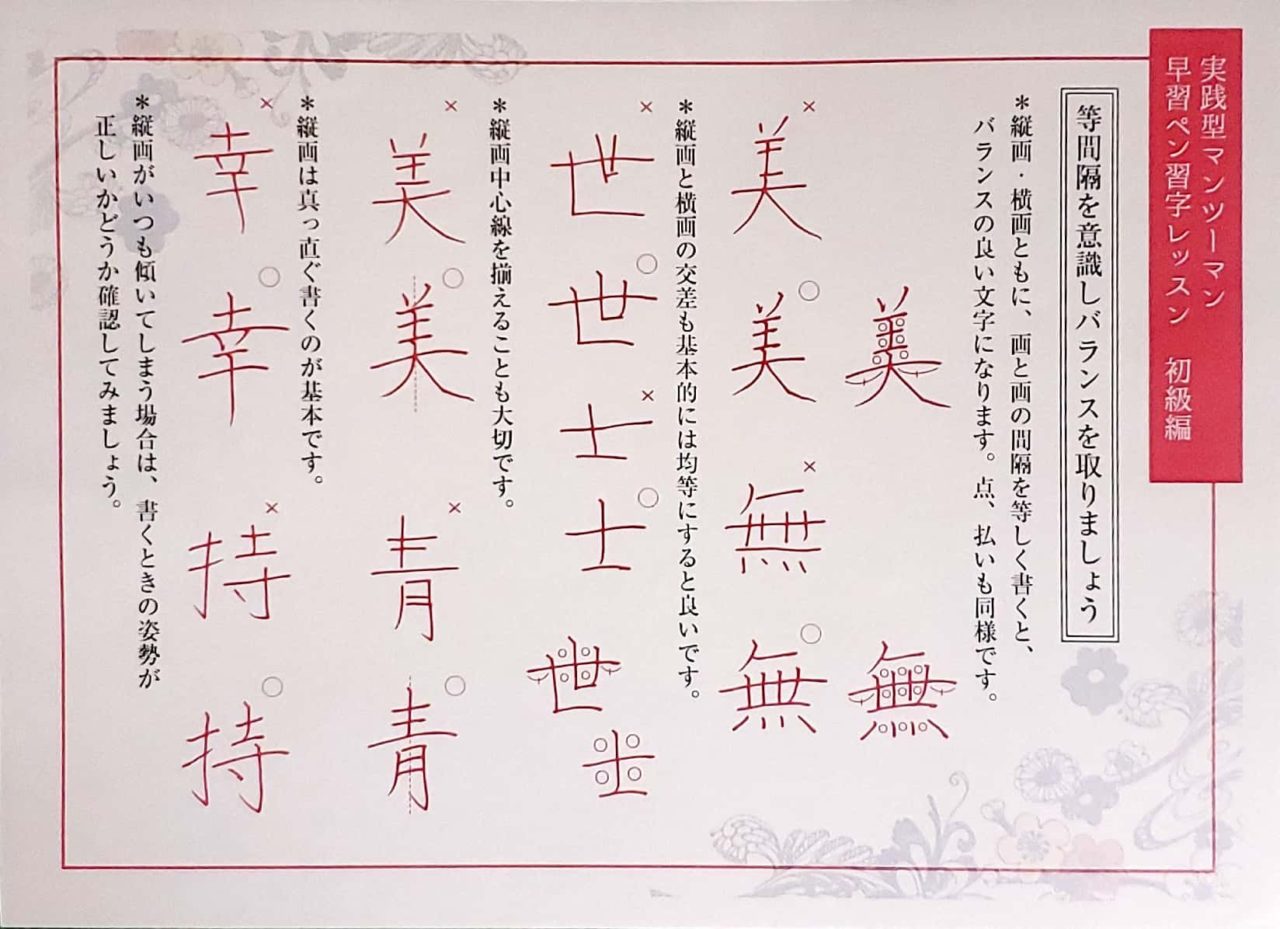 実践型マンツーマン
早習ペン習字レッスン　初級編
等間隔を意識しバランスを取りましょう
＊縦画・横画ともに、画と画の間隔を等しく書くと、
バランスの良い文字になります。点、払いも同様です。
美　無
×美　○美　×無　○無
＊縦画と横画の交差も基本的には均等にすると良いです。
×世　○世　×士　○士　世　士
＊縦画中心線を揃えることも大切です。
×美　○美　×青　○青
＊縦画は真っ直ぐ書くのが基本です。
×幸　○幸　×持　○持
＊縦画がいつも傾いてしまう場合は、書くときの姿勢が
正しいかどうか確認してみましょう。